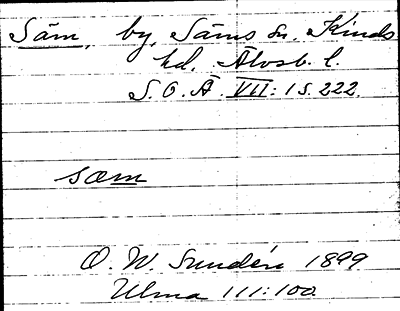 Säm, by, Säms sn. Kinds
hd. Älvsb. l.
S. O. Ä. VII: 1 S. 222.
sæm
O. W. Sundén 1899
Ulma 111:100.